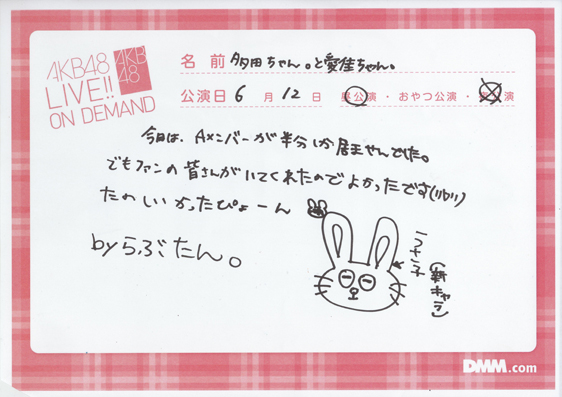 AKB48
LIVE!!
ON DEMAND
AKB
48
名前 多田ちゃん。と愛佳ちゃん。
公演日 6月12日 昼公演・おやつ公演・夜公演
今日は、Aメンバーが半分しか居ませんでした。
でもファンの皆さんがいてくれたのでよかったです(
たのしいかったぴょーん
byらぶたん。
(新キャラ)
DMM.com